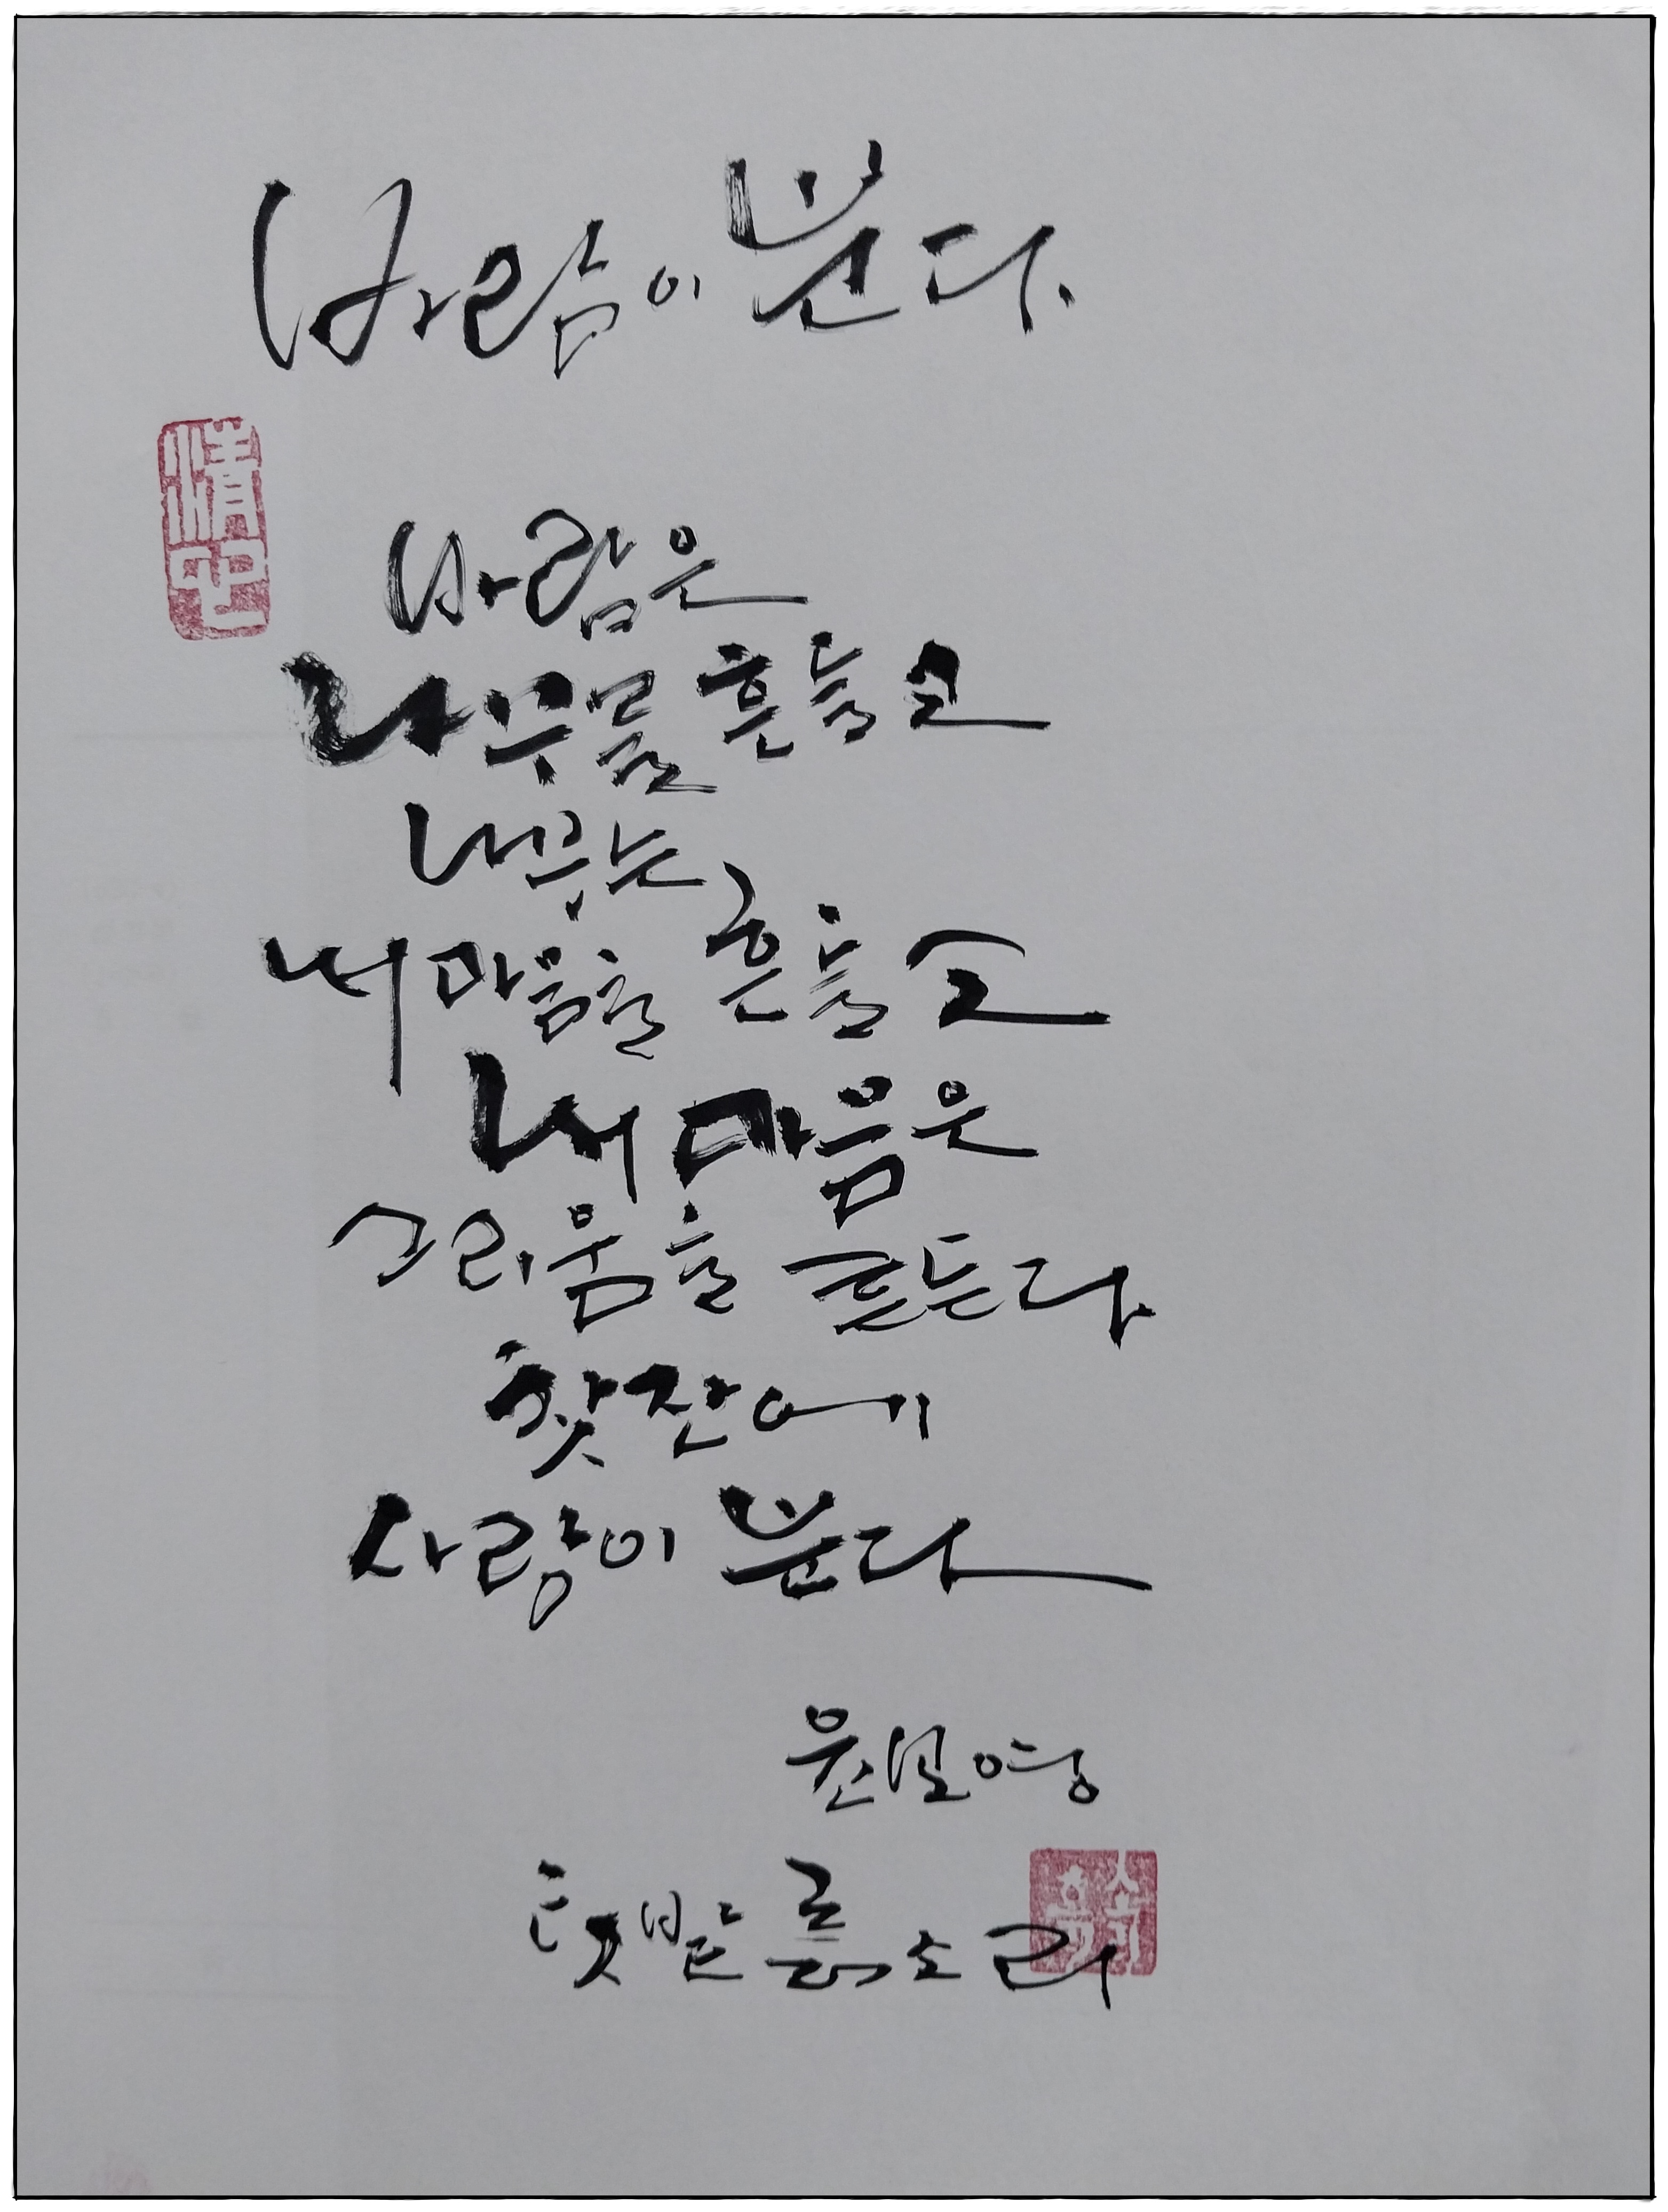 바람이 분다
情心
바람은
나무를 흔들고
나무는
내 마음을 흔들고
내 마음은
그리움을 흔든다
찻잔에
사랑이 분다
윤보영
텃밭 흙소리
소리
흙